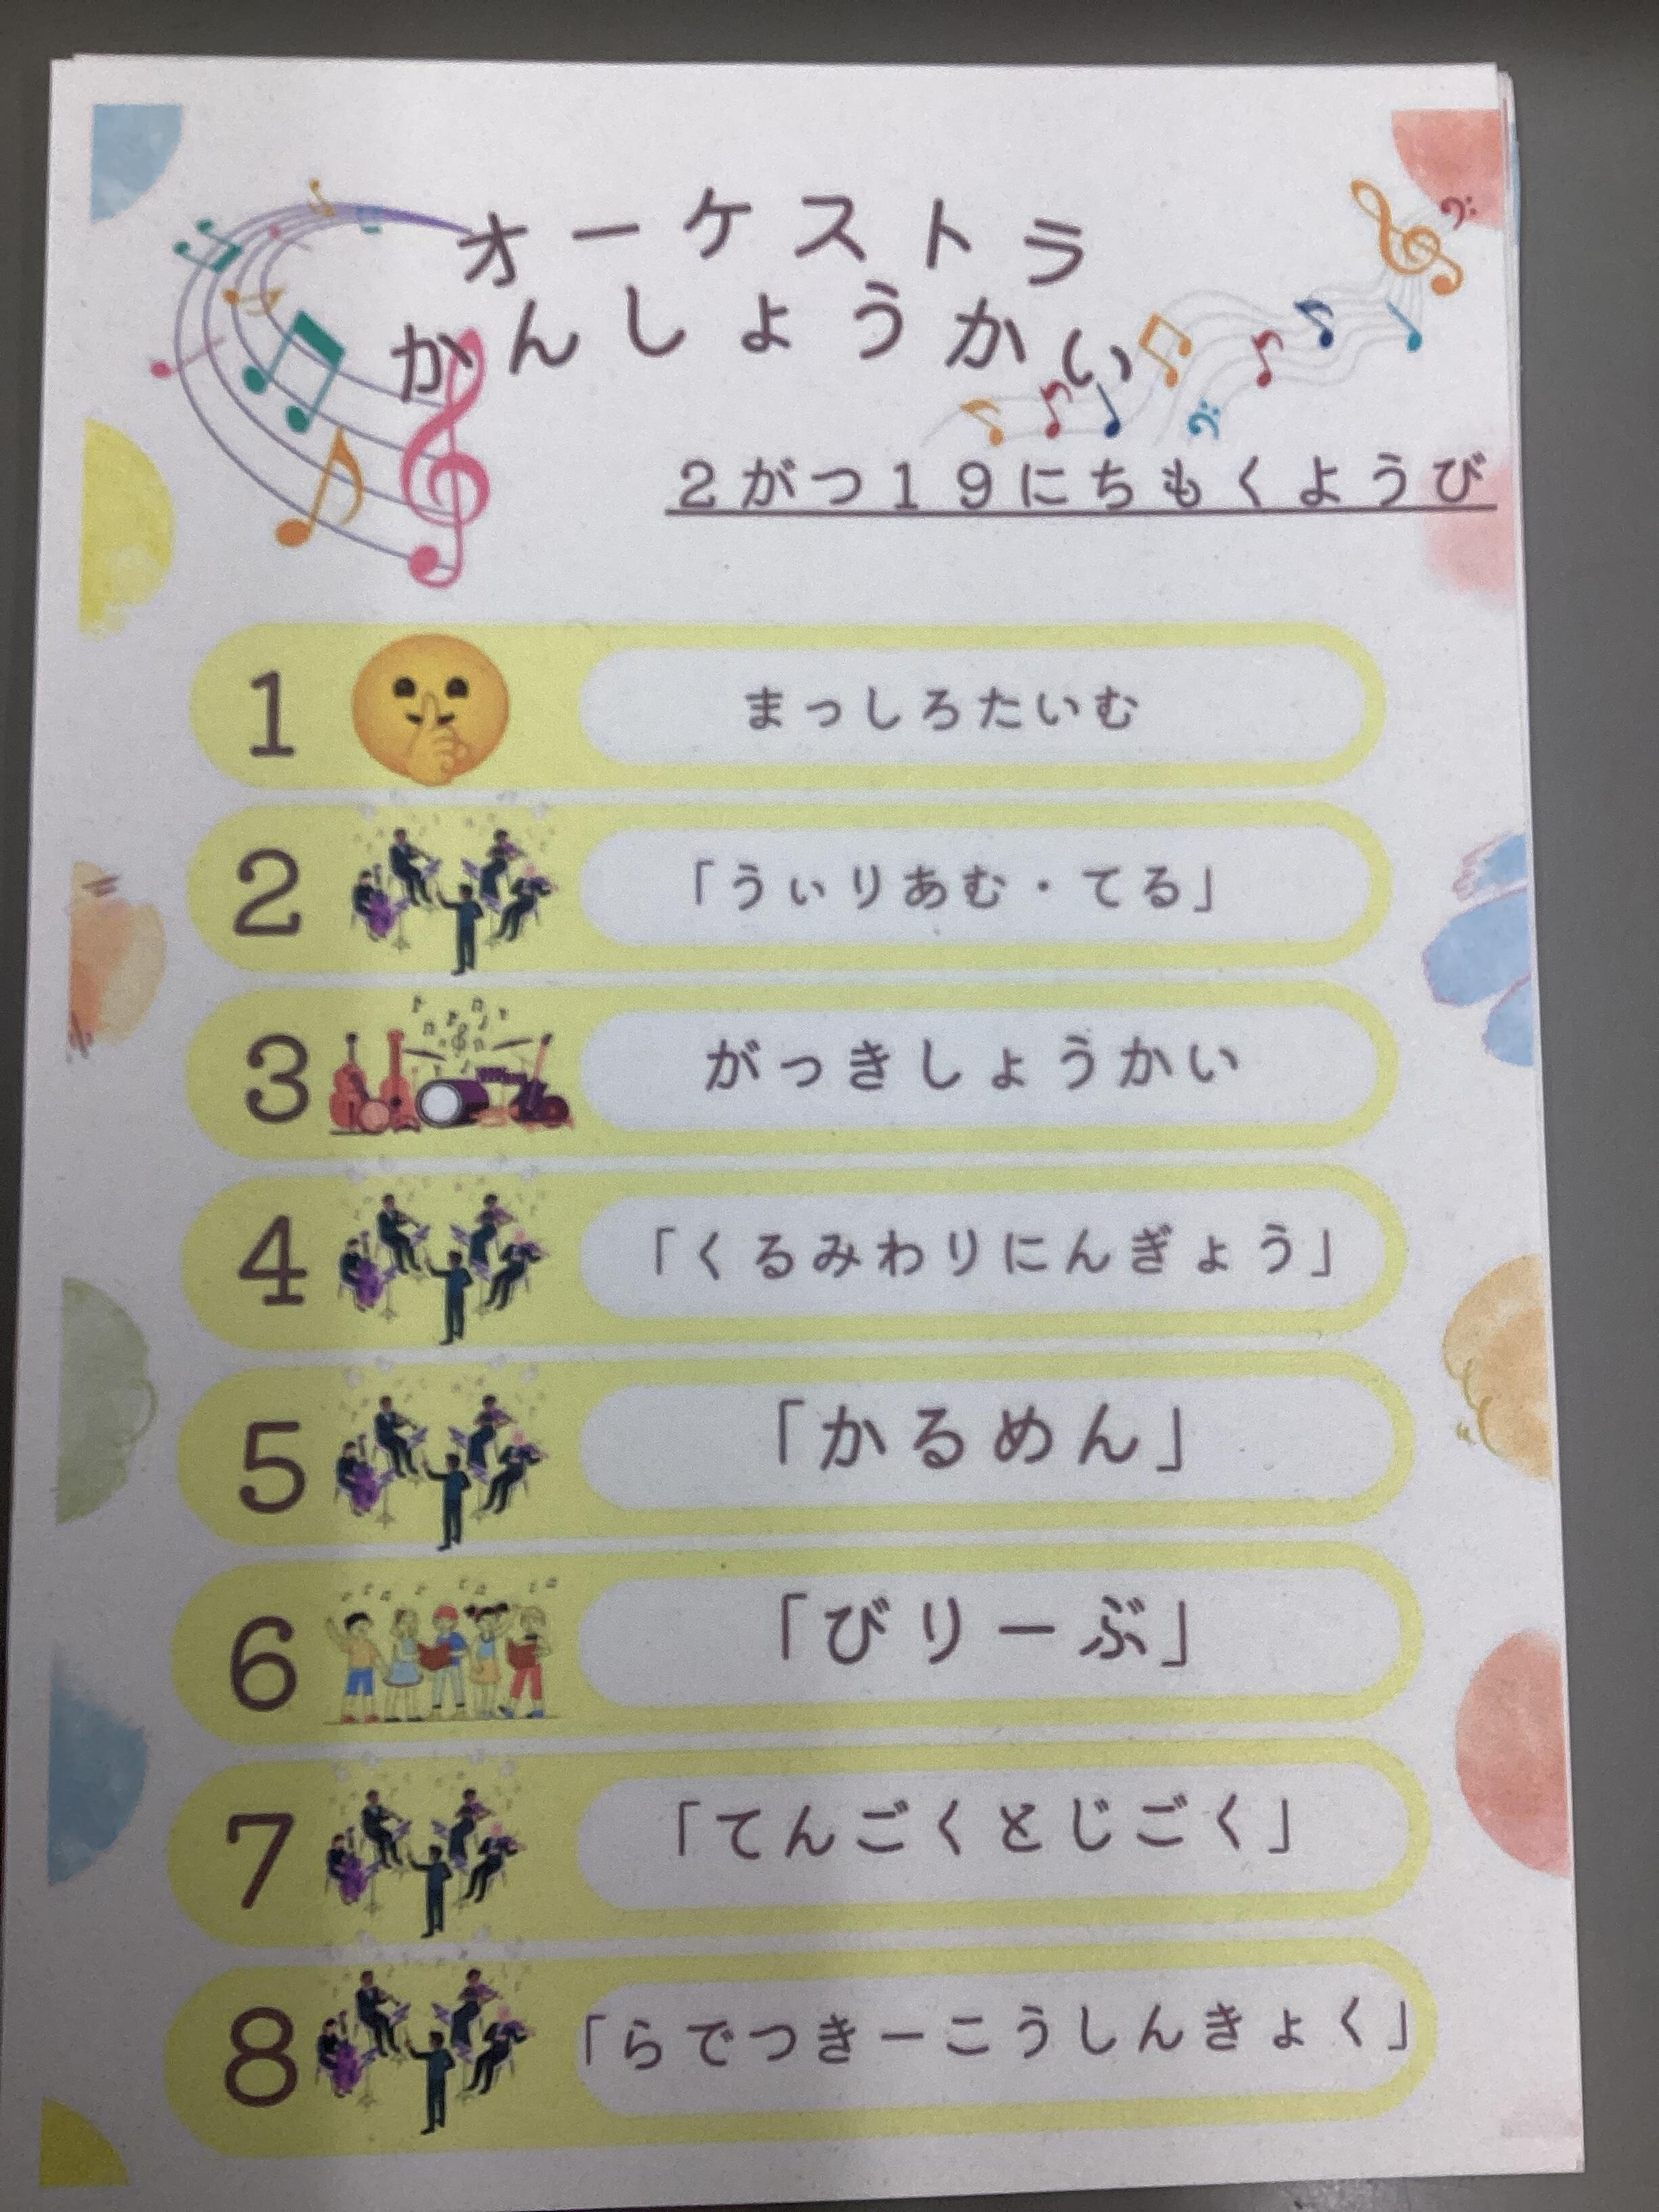 オーケストラ
かんしょうかい
２がつ１９にちもくようび
1 まっしろたいむ
2 「うぃりあむ・てる」
3 がっきしょうかい
4 「くるみわりにんぎょう」
5 「かるめん」
6 「びりーぶ」
7 「てんごくとじごく」
8 「らでつきーこうしんきょく」